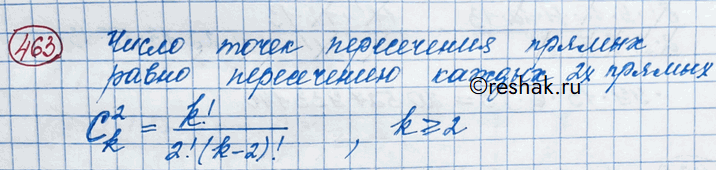 463
Число точек пересечения прямых
равно пересечению каждых 2х прямых
©reshak.ru
C_k^2 = k! / 2!(k-2)! , k ≥ 2